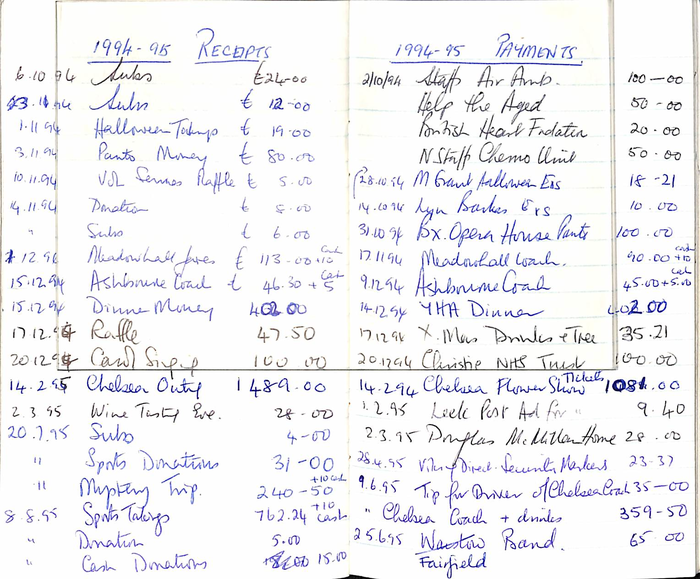 1994-95 RECEIPTS
6.10 94 Subs £24-00
3.11.94 Subs £ 12-00
1.11 94 Halloween Takings £ 19.00
3.11.94 Pants Money £ 80.00
10.11.94 Raffle £ 5.00
14.11.94 Donation £ 5.00
" Subs £ 6.00
12 94 Meadowhall fares £ 113.00 + cash 10
15.12.94 Ashbourne Coach £ 46.30 + 5 cash
15.12.94 Dinner Money 402.00
17.12.94 Raffle 47.50
20.12.94 Carol Singing 100.00
14.2.95 Chelsea Outing 1489.00
2.3.95 Wine Tasting Eve. 28-00
20.7.95 Subs 4-00
" Sports Donations 31-00
" Mystery Trip. 240-50 +10 cash
8.8.95 Sports Takings 762.24 +10 cash
" Donation 5.00
" Cash Donations 15.00
1994-95 PAYMENTS.
2/10/94 Staffs Air Amb. 100-00
Help the Aged 50-00
British Heart Fndation 20.00
N Staff Chemo Unit 50.00
28.10.94 M Grant Halloween Exs 18-21
14.10.94 Lyn Barkes Exs 10.00
31.10.94 Bx. Opera House Panto 100.00
17.11.94 Meadowhall Coach. 90.00 + cash 10
9.12.94 Ashbourne Coach 45.00 + 5.00 cash
14.12.94 YHA Dinner 402.00
17.12.94 X. Mas Drinks + Tree 35.21
20.12.94 Christie NHS Trust 100.00
14.2.94 Chelsea Flower Show Tickets 1081.00
1.2.95 Leek Post Ad for " 9.40
2.3.95 Douglas McMillan Home 28.00
28.4.95 Direct. Security Markers 23-37
9.6.95 Tip for Driver of Chelsea Coach 35-00
" Chelsea Coach + drinks 359-50
25.6.95 Band. 65.00
Fairfield